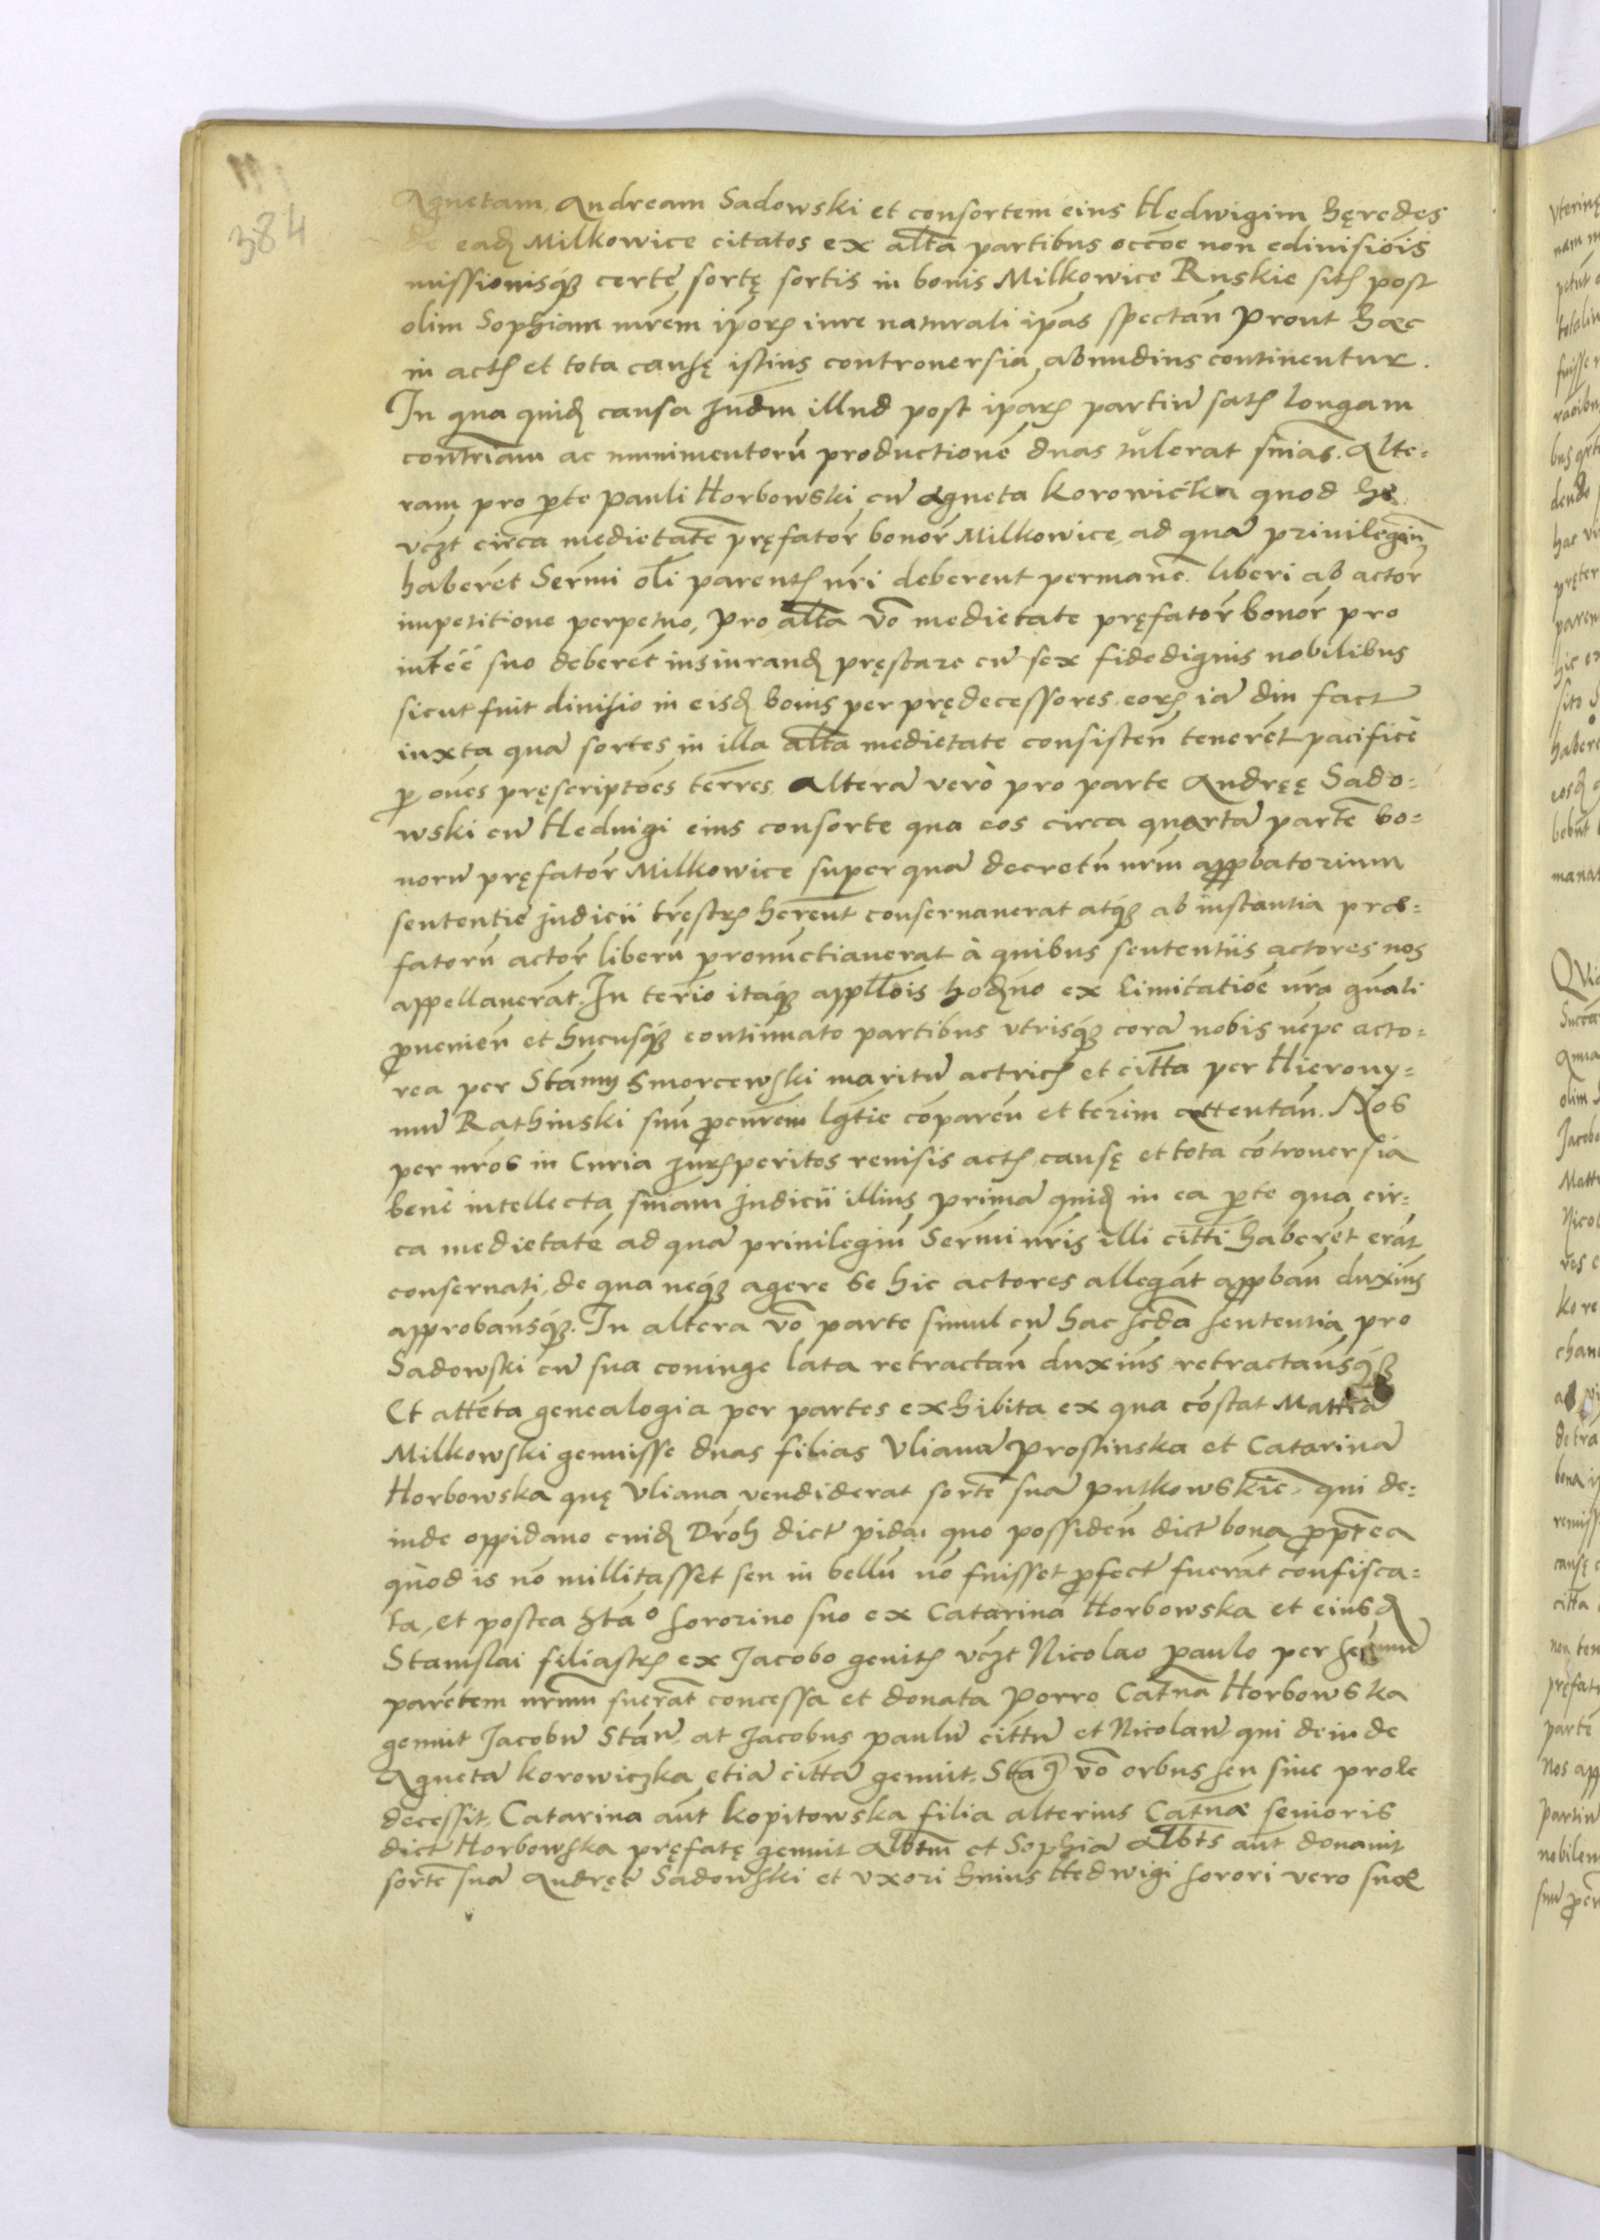 384
Agnetam, Andream Sadowski et consortem eius Hedwigim hęredes
de eadē Milkowice citatos ex altā partibus occōe non edinisiōis
missionisq3 certę sortę sortis in bonis Milkowice Ruskie sitis post
olim Sophiam mrēm ipōrꝫ iure naturali ipās spectan̄ Prout hæc
in actis et tota causę istius controuersia abundius continentur.
In qua quidē causa Judm̄ illud post iparꝫ partiū satis longam
contr̄iam ac munimentorū productionē duas tulerat sn̄ias. Alte-
ram pro ꝑte Pauli Horbowski cū Agneta Korowicka quod hi
vcꝫt circa medietatē pręfator̄ bonor̄ Milkowice, ad quā priuilegiū
haberēt Serm̄i oli parentis nr̄i deberent permanē. liberi ab actor̄
impetitione perpetuo, Pro altā vō medietate pręfator̄ bonor̄ pro
intēē suo deberēt insiurandē pręstare cū sex fidedignis nobilibus
sicut fuit diuisio in eisdē bonis per prędecessores eorꝫ iā diu fact
iuxta quā sortes in illa altā medietate consisten̄ tenerēt pacificè
ꝑ oēs pręscriptōes terr̄es. Alterā verò pro parte Andręę Sado-
wski cū Heduigi eius consorte qua eos circa quartā partē bo-
norū pręfator̄ Milkowice super quā decretū nrm̄ appbatorium
sententię Judicii tr̄estris herēnt conseruauerat atq3 ab instantia præ-
fatorū actor̄ liberū pronunctiauerat à quibus sententiis actores nos
appellauerāt. In termīo itaq3 appllōis hodīno ex limitatiōe nr̄a gn̄ali
ꝓuenien̄ et hucusq3 continuato partibus vtrisq3 corā nobis nēpe acto-
rea per Stām Smorcewski maritū actricis et cittā per Hierony-
mū Rathinski suū ꝓcur̄em lḡtie cōparen̄ et term̄ attentan̄. Nos
per nr̄os in Curia Jurisperitos reuisis actis causę et tota cōtrouersia
benè intellecta sn̄iam Judicii illius primā quidē in ea ꝑte qua cir-
ca medietatē ad quā priuilegiū Serm̄i nr̄is illi citti haberēt erāt
conseruati, de qua neq3 agere se hic actores allegāt appban̄ duxim̄us
approbamusq3. In altera vō parte simul cū hac scdā sententia pro
Sadowski cū sua coniuge lata retractan̄ duxim̄us retractamusq3
Et attēta genealogia per partes exhibita ex qua cōstat Mattiā
Milkowski genuisse duas filias Vlianā Prostinska et Catarinā
Horbowska quę Vliana vendiderat sortē suā Putkowskiē, qui de-
inde oppidano cuidē Droh dict pida, quo possiden̄ dict bona ꝓptēa
quòd is nō millitasset seu in bellū nō fuisset ꝓfect fuerāt confisca-
ta, et postea sororino suo ex Catarina Horbowska et eiusdē
Stanislai filiastris ex Jacobo genitis vcꝫt Nicolao Paulo per
parētem nrm̄ fuerāt concessa et donata Porro Catn̄a Horbowska
genuit Jacobū Stān̄, at Jacobus Paulū cittū et Nicolaū qui deinde
Agnetā Korowiczka etiā cittā genuit. Sta vō orbus seu siue prole
decessit, Catarina aūt Kopitowska filia alterius Catn̄æ senioris
dict Horbowska pręfatę genuit Albtm̄ et Sophiā Albts̄ aūt donauit
sortē suā Andręę Sadowski et vxori huius Hedwigi sorori vero suæ